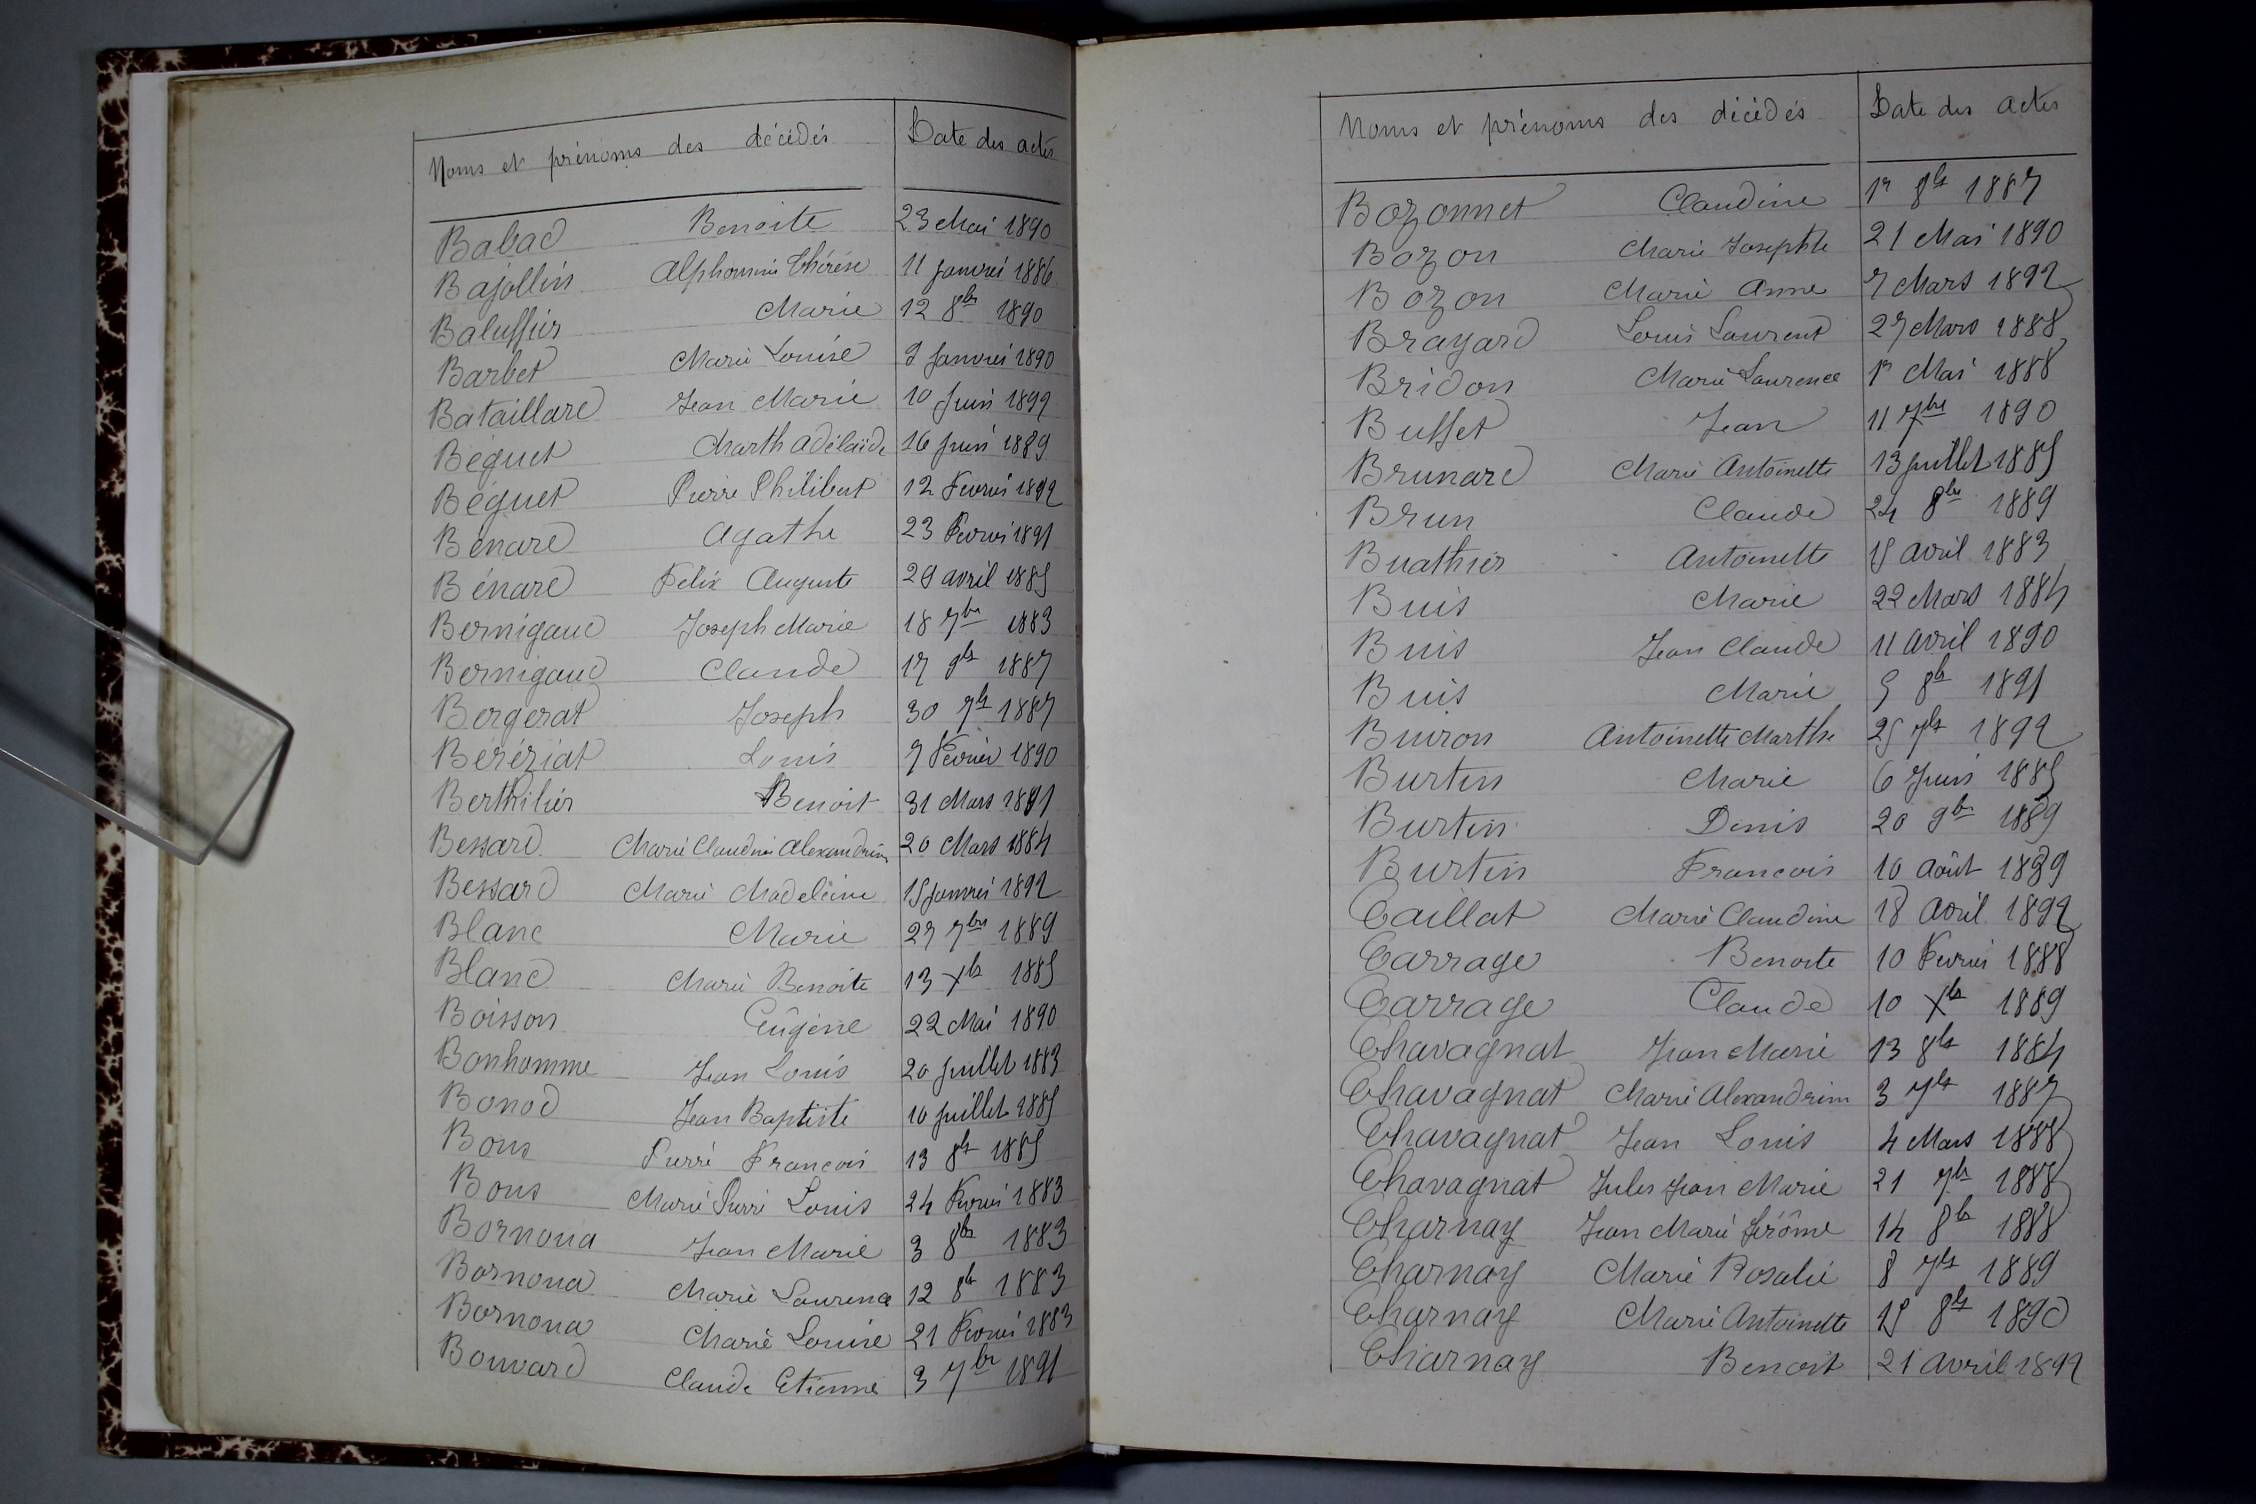 Noms et prénoms des décédés Date des actes
Babad Benoite 23 Mai 1890
Bajollin Alphonsine Thérèse 11 Janvier 1886
Baluffier Marie 12 8bre 1890
Barbet Marie Louise 9 Janvier 1890
Bataillard Jean Marie 10 Juin 1892
Béquet Marth Adélaïde 16 Juin 1889
Béquet Pierre Philibert 12 Fevrier 1892
Bénard Agathe 23 Fevrier 1891
Bénard Felix Auguste 29 avril 1885
Bernigaud Joseph Marie 18 7bre 1883
Bernigaud Claude 17 9bre 1887
Bergerat Joseph 30 7bre 1887
Béréziat Louis 7 Février 1890
Berthilier Benoit 31 Mars 1891
Bessard Marie Claudine Alexandrine 20 Mars 1884
Bessard Marie Madeleine 15 Janvier 1892
Blanc Marie 27 7bre 1889
Blanc Marie Benoite 13 Xbre 1885
Boisson Eugène 22 Mai 1890
Bonhomme Jean Louis 20 Juillet 1883
Bonod Jean Baptiste 10 Juillet 1885
Bons Pierre Francois 13 8bre 1885
Bons Marie Pierre Louis 24 Fevrier 1883
Bornoua Jean Marie 3 8bre 1883
Bornoua Marie Laurence 12 8bre 1883
Bornoua Marie Louise 21 Fevrier 1883
Bouvard Claude Etienne 3 7bre 1891
Noms et prénoms des décédés Date des actes
Bozonnet Claudine 1er 8bre 1887
Bozon Marie Josephte 21 Mai 1890
Bozon Marie Anne 7 Mars 1892
Brayard Louis Laurent 27 Mars 1888
Bridon Marie Laurence 1er Mai 1888
Buffet Jean 11 7bre 1890
Brunard Marie Antoinette 13 Juillet 1885
Brun Claude 24 8bre 1889
Buathier Antoinette 15 avril 1883
Buis Marie 22 Mars 1884
Buis Jean Claude 11 avril 1890
Buis Marie 5 8bre 1891
Buiron Antoinette Marthe 25 7bre 1892
Burtin Marie 6 Juin 1885
Burtin Denis 20 9bre 1889
Burtin Francois 10 Août 1889
Caillat Marie Claudine 18 avril 1892
Carrage Benoite 10 Fevrier 1888
Carrage Claude 10 Xbre 1889
Chavagnat Jean Marie 13 8bre 1884
Chavagnat Marie Alexandrine 3 7bre 1887
Chavagnat Jean Louis 4 Mars 1888
Chavagnat Jules Jean Marie 21 7bre 1888
Charnay Jean Marie Jérôme 14 8bre 1888
Charnay Marie Rosalie 8 7bre 1889
Charnay Marie Antoinette 15 8bre 1890
Charnay Benoit 21 avril 1892